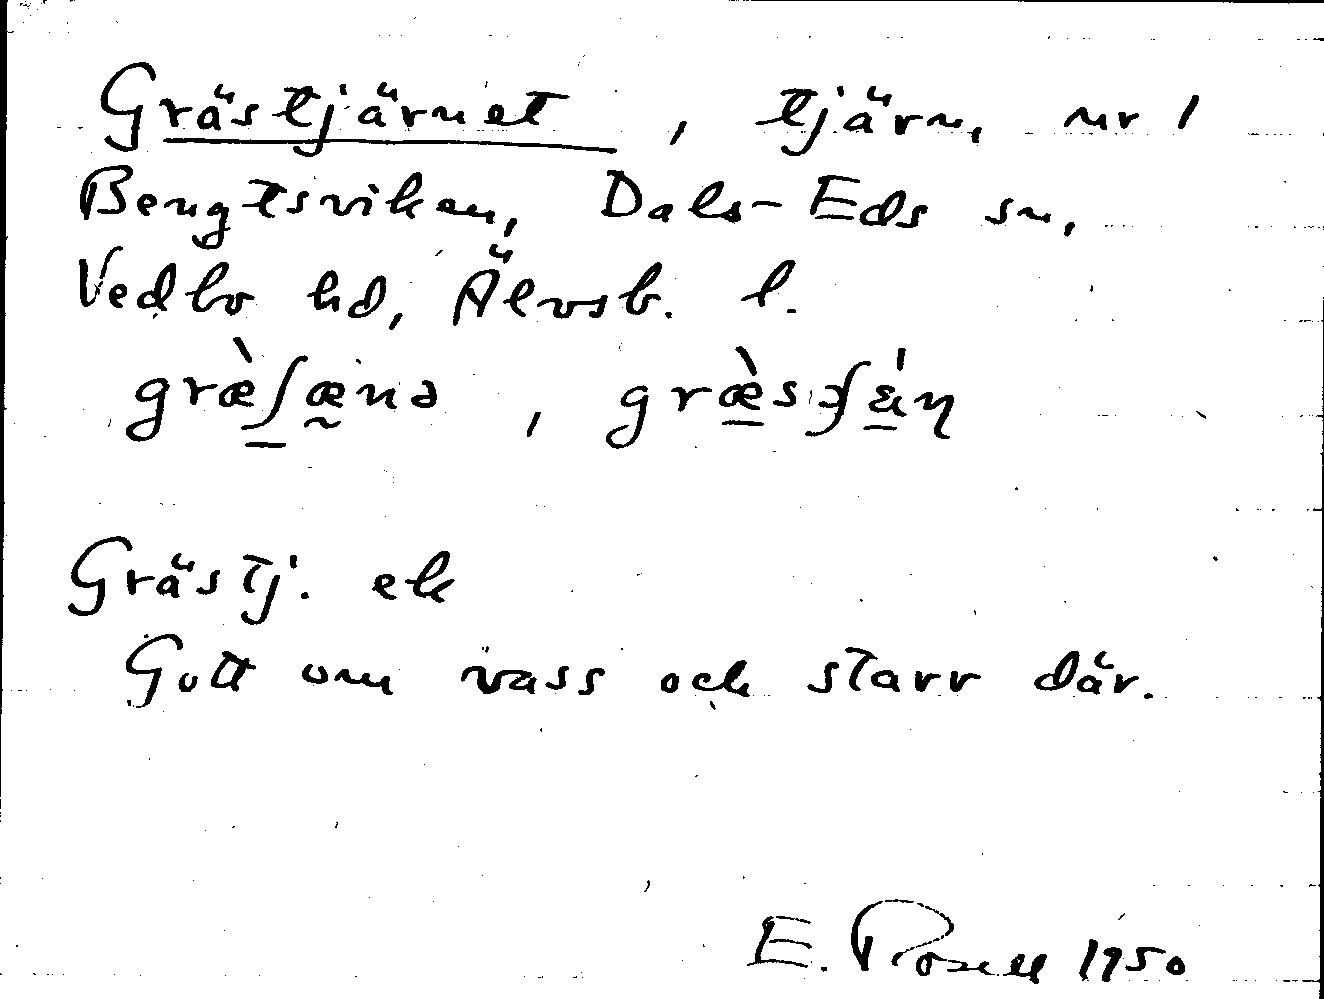 Grästjärnet, tjärn, nr 1
Bengtsviken, Dals-Eds sn,
Vedbo hd, Älvsb. l.
græ̀ʃæ̰nə, græ̀s
Grästj. ek
Gott om vass och starr där.
E. Rosell 1950